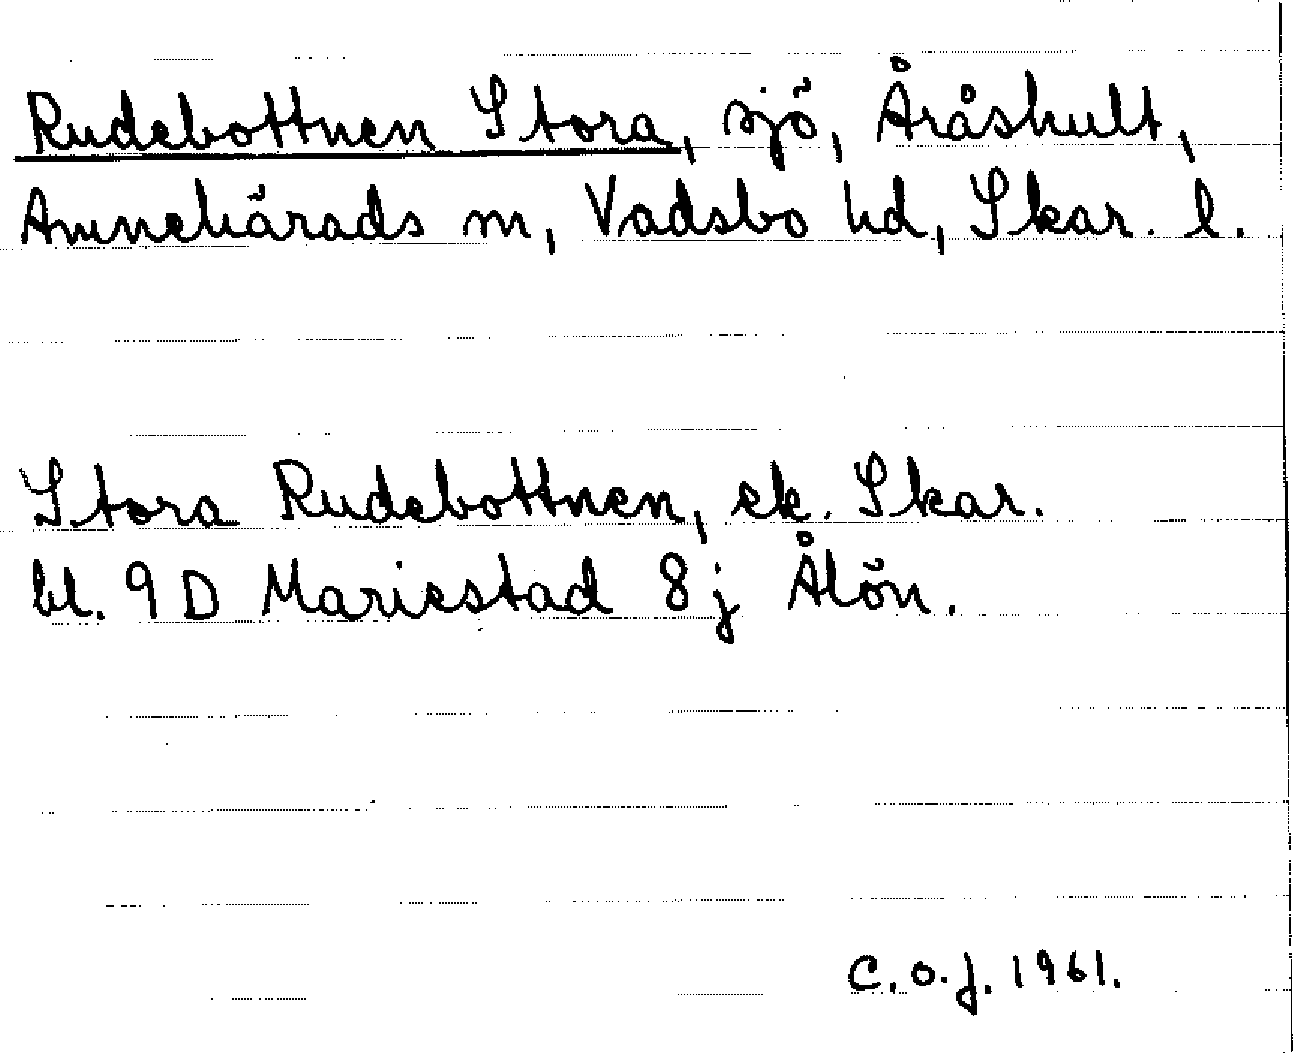 Rudebottnen Stora, sjö, Åråshult,
Amnehärads sn, Vadsbo hd, Skar. l.
Stora Rudebottnen, ek. Skar.
bl. 9 D Mariestad 8 j Ålön.
C.O.J. 1961.